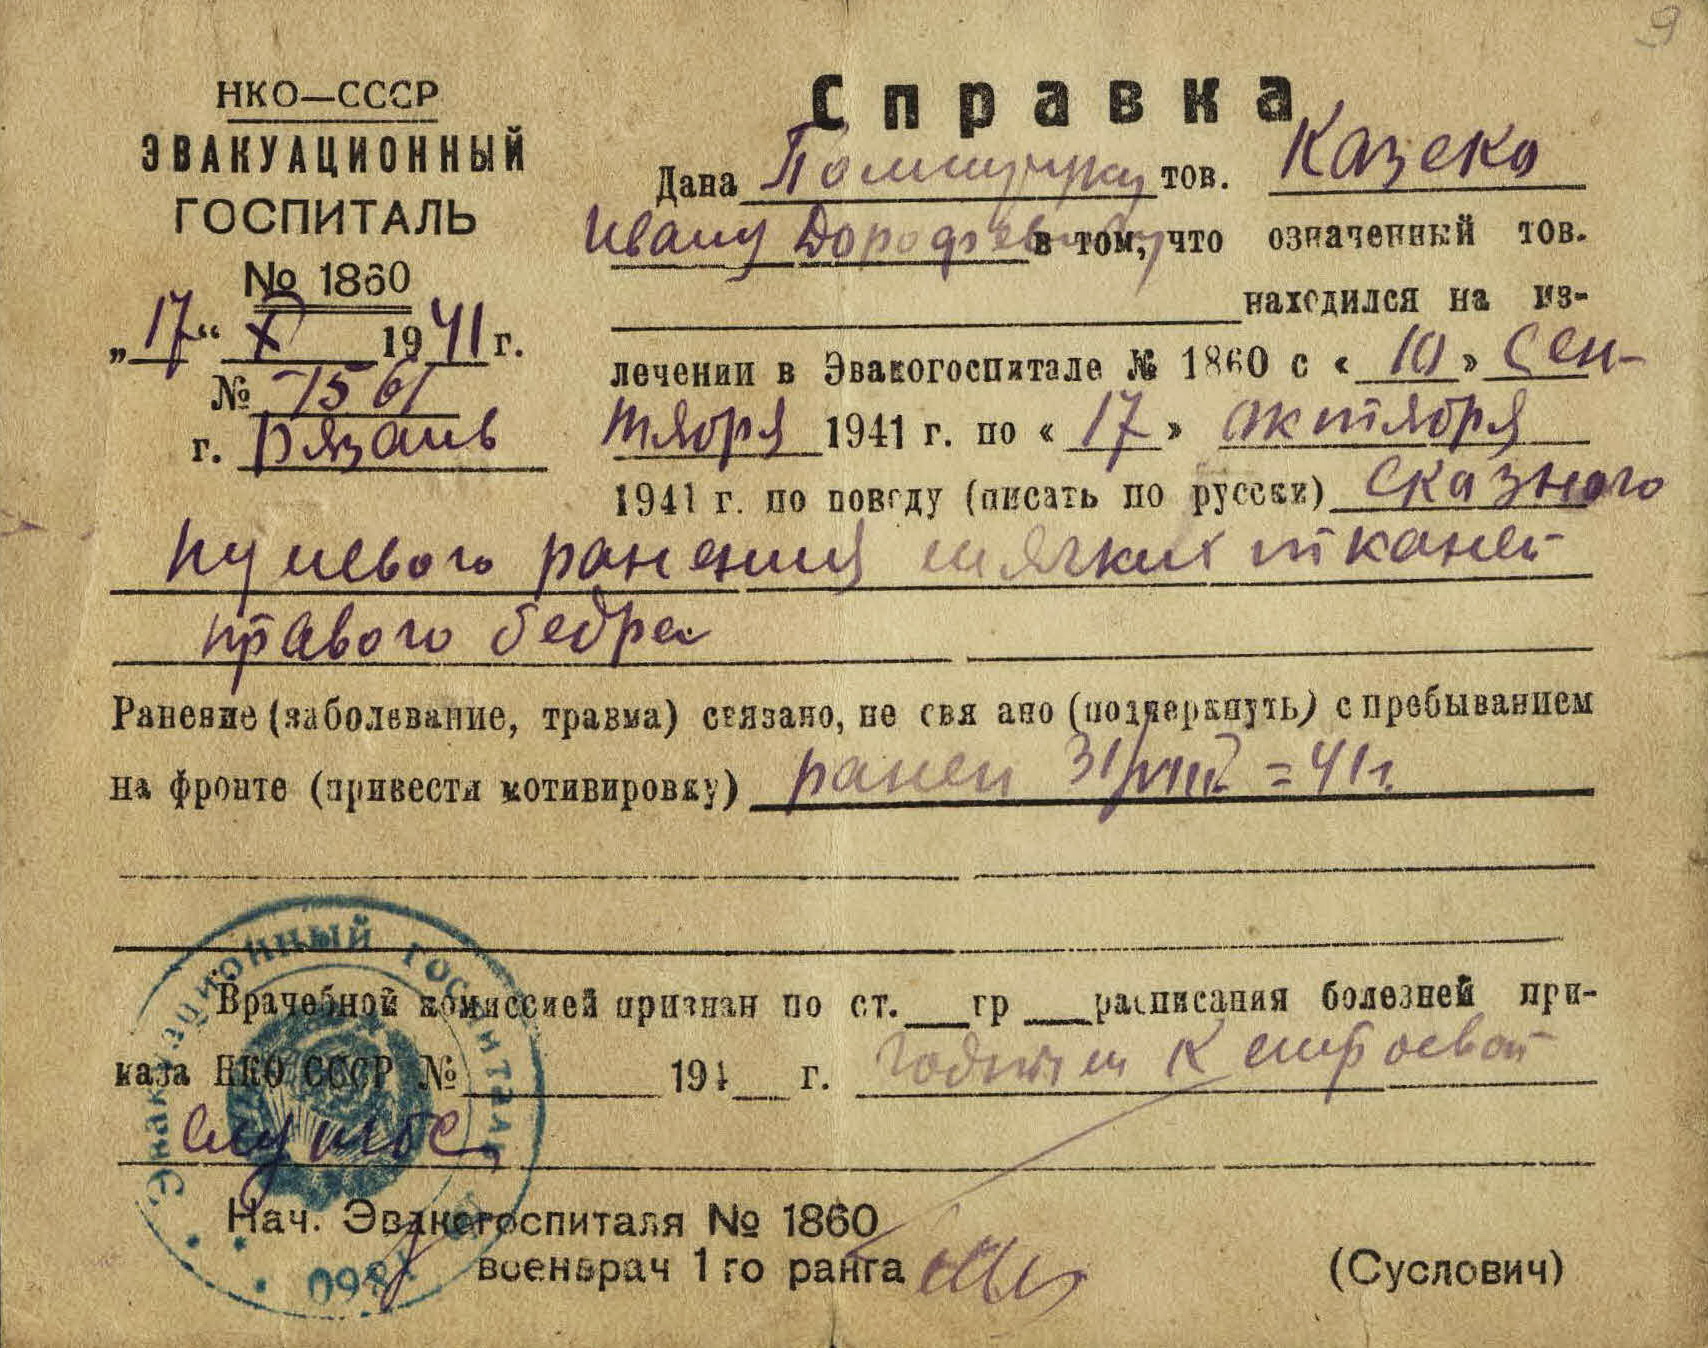 9
НКО—СССР
ЭВАКУАЦИОННЫЙ
ГОСПИТАЛЬ
№ 1860
„17“ X 1941 г.
№ 7561
г. Рязань
Справка
Дана Политруку тов. Казеко
Ивану Дорофеевичу в том, что означенный тов.
находился на из-
лечении в Эвакогоспитале № 1860 с «10» Сен-
тября 1941 г. по «17» октября
1941 г. по поводу (писать по русски) сквозного
пулевого ранения мягких тканей
правого бедра
Ранение (заболевание, травма) связано, не свя ано (подчеркнуть) с пребыванием
на фронте (привести мотивировку) ранен 31/VIII-41г.
Врачебной комиссией признан по ст. гр расписания болезней при-
каза НКО СССР № 194 г. годным к строевой
службе
Нач. Эвакогоспиталя № 1860
военврач 1 го ранга (Суслович)
Эвакуационный госпиталь № 1860